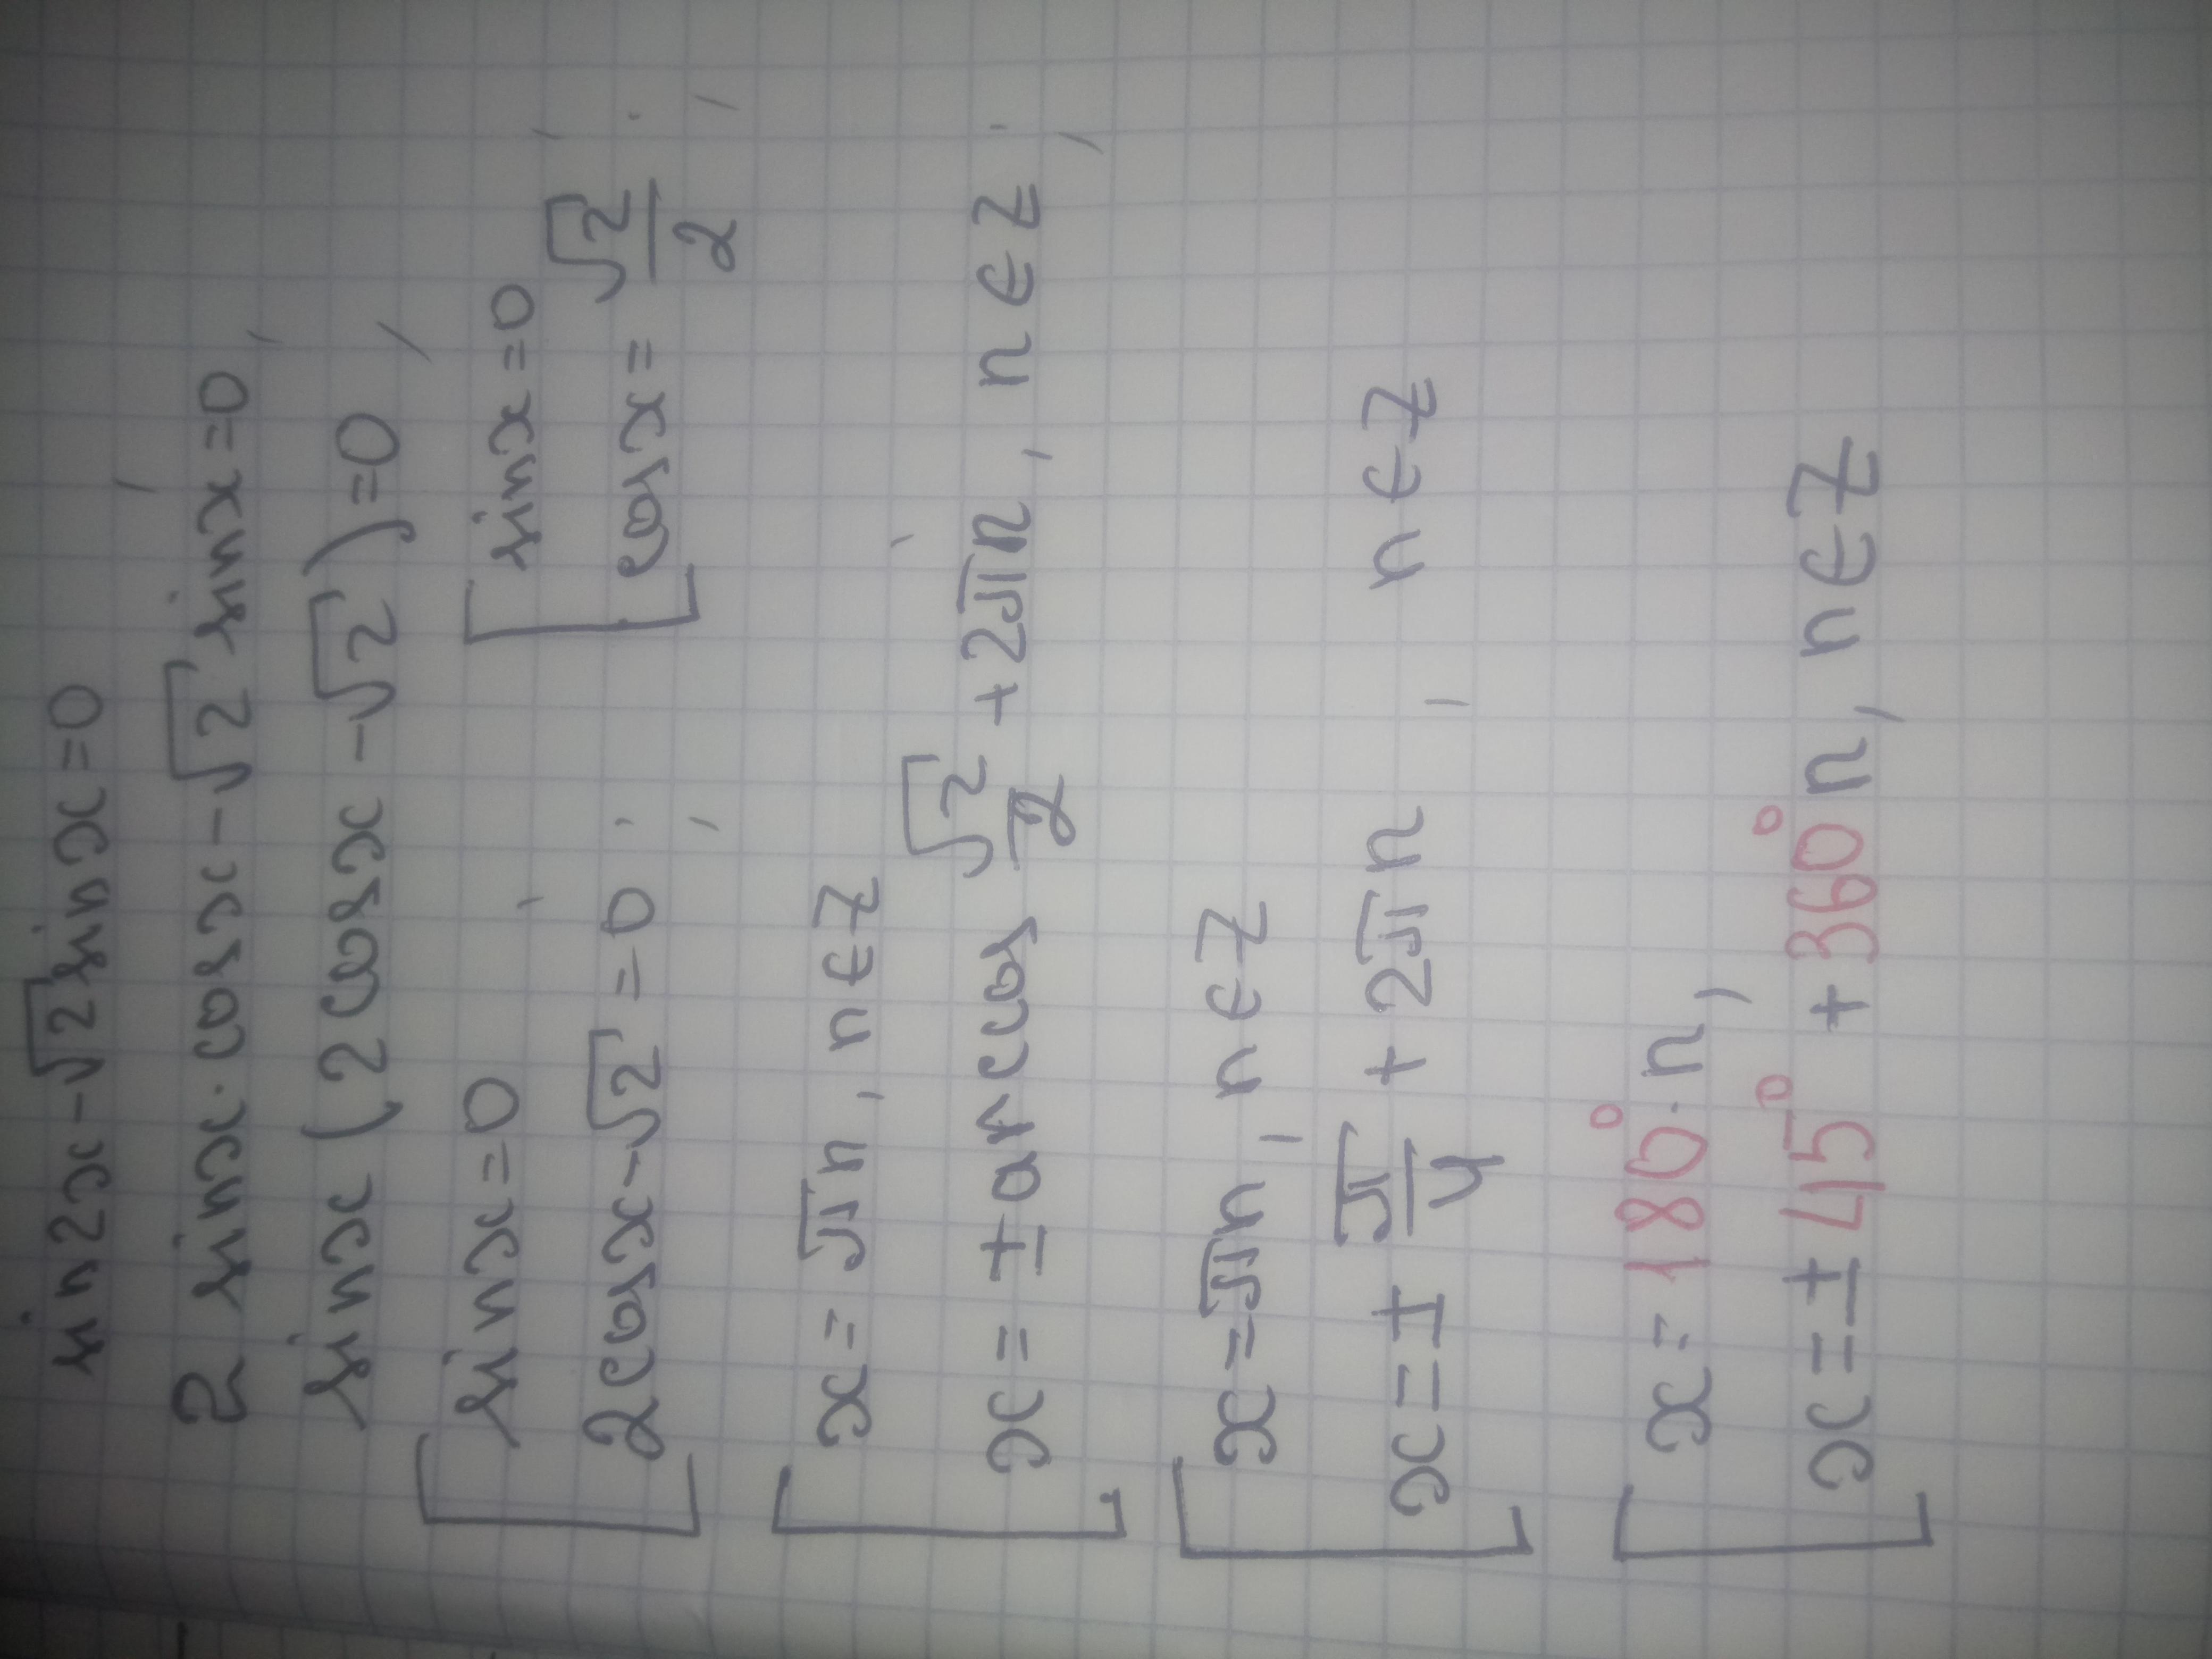 sin2x-√2sinx=0,
2 sinx·cosx-√2 sinx=0,
sinx (2cosx-√2)=0,
[ sinx=0, [ sinx=0,
2cosx-√2=0; cosx=√2/2;
[ x=πn, n∈Z
x=±arccos √2/2+2πn, n∈Z;
[ x=πn, n∈Z
x=±π/4+2πn, n∈Z
[ x=180°·n,
x=±45°+360°n, n∈Z